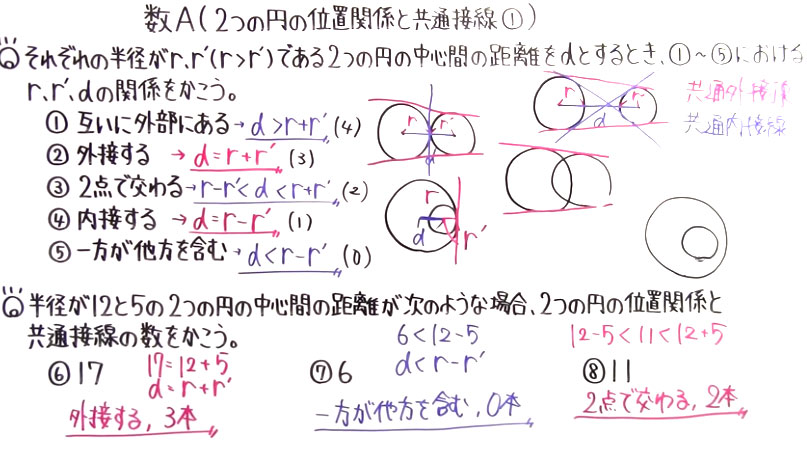 数A(2つの円の位置関係と共通接線①)
Q それぞれの半径がr、r'(r>r')である2つの円の中心間の距離をdとするとき、①〜⑤における
r、r'、dの関係をかこう。
① 互いに外部にある→ d>r+r' (4)
② 外接する → d=r+r' (3)
③ 2点で交わる→ r-r'<d<r+r' (2)
④ 内接する → d=r-r' (1)
⑤ 一方が他方を含む→ d<r-r' (0)
r r'
d
r r'
d
共通外接線
共通内接線
r
d
r'
Q 半径が12と5の2つの円の中心間の距離が次のような場合、2つの円の位置関係と
共通接線の数をかこう。
⑥ 17
17=12+5
d=r+r'
外接する, 3本
⑦ 6
6<12-5
d<r-r'
一方が他方を含む, 0本
⑧ 11
12-5<11<12+5
2点で交わる, 2本